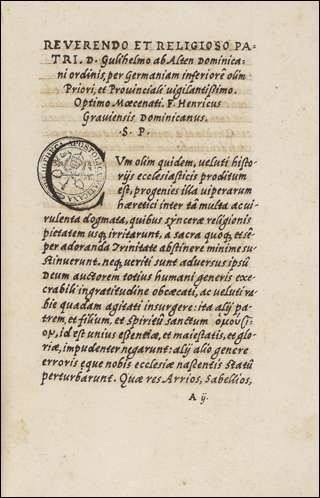 REVERENDO ET RELIGIOSO PA-
TRI. D. Gulihelmo ab Alten Dominica-
ni ordinis, per Germaniam inferiorē olim
Priori, et Provinciali vigilantissimo.
Optimo Mœcenati. F. Henricus
Graviensis Dominicanus.
S. P.
CVm olim quidem, veluti histo-
rijs ecclesiasticis proditum
est, progenies illa viperarum
hæretici inter tā multa ac vi-
rulenta dogmata, quibus synceræ religionis
pietatem usq; irritarunt, á sacra quoq; et sē-
per adoranda Trinitate abstinere minime su-
stinuerunt. neq; veriti sunt adversus ipsū
Deum auctorem totius humani generis exe-
crabili ingratitudine obcæcati, ac veluti ra-
bie quadam agitati insurgere: ita alij pa-
trem, et filium, et Spiritū sanctum ὁμούσι-
ον, id est unius essentiæ, et maiestatis, et glo-
riæ, impudenter negarunt: alij alio genere
erroris æque nobis ecclesiæ nascentis statū
perturbarunt. Quæ res Arrios, Sabellios,
A ij.